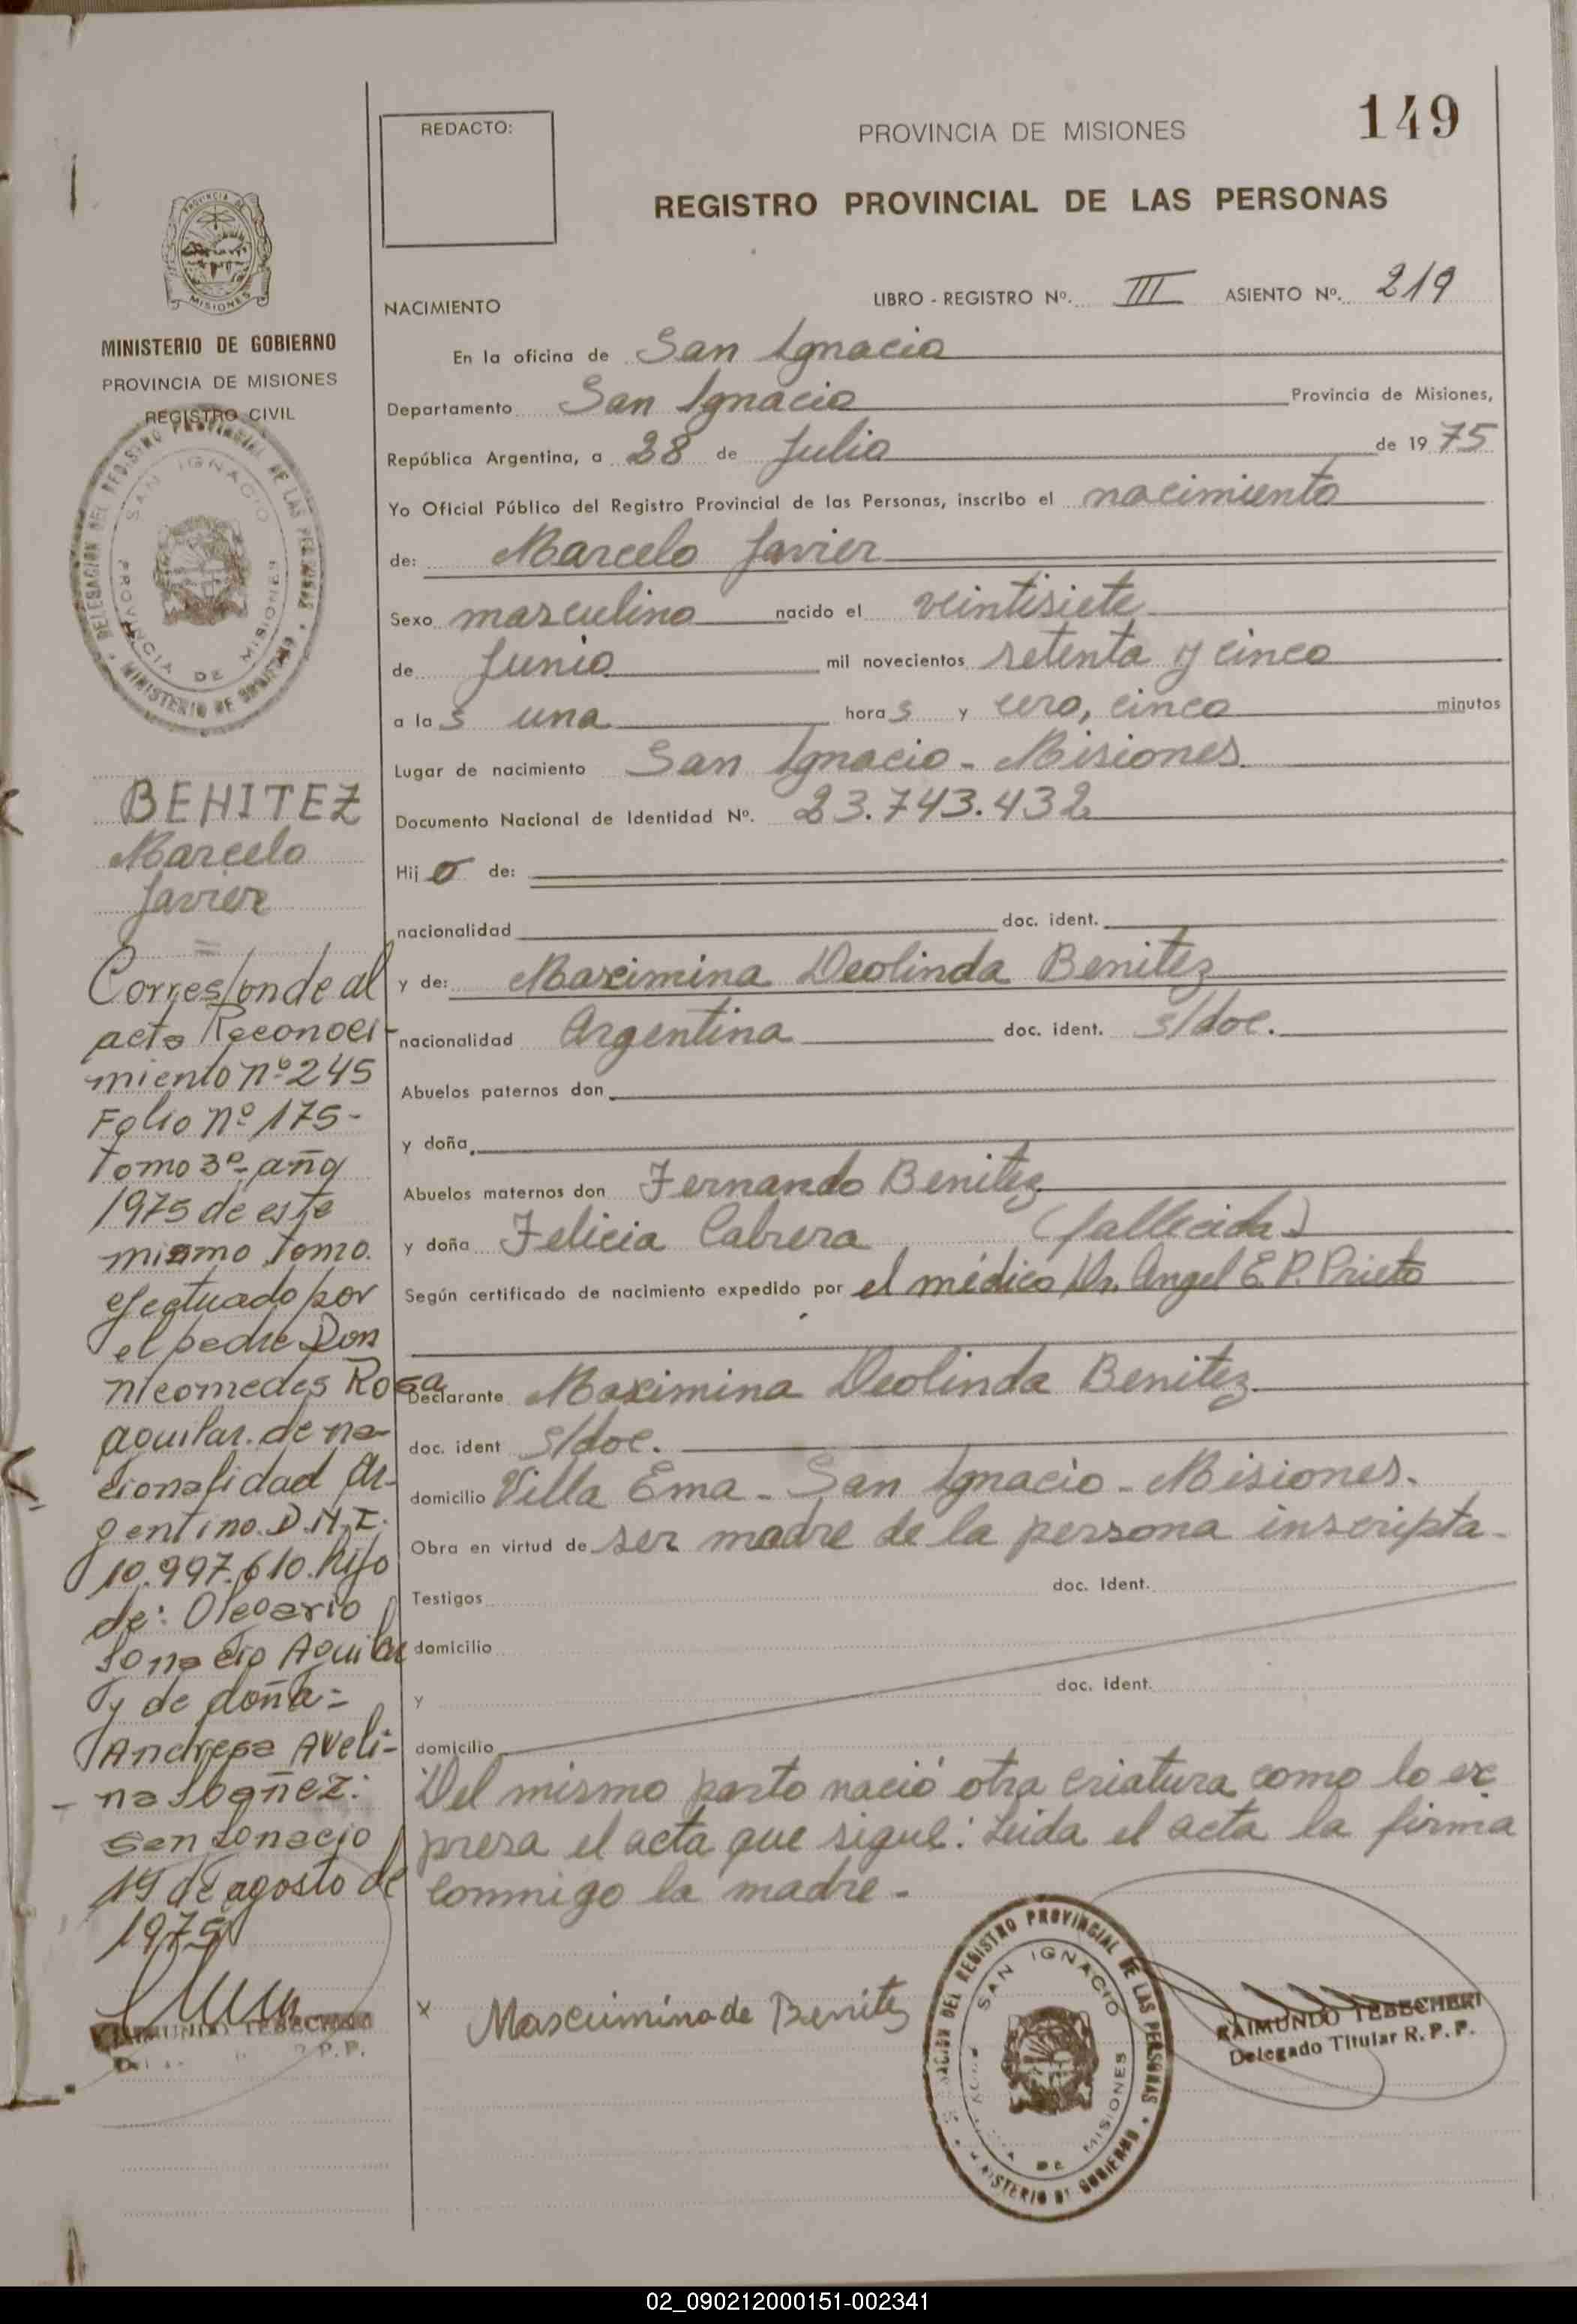 149
REDACTO:
PROVINCIA DE MISIONES
REGISTRO PROVINCIAL DE LAS PERSONAS
PROVINCIA DE
MISIONES
MINISTERIO DE GOBIERNO
PROVINCIA DE MISIONES
REGISTRO CIVIL
DELEGACION DEL REGISTRO PROVINCIAL DE LAS PERSONAS
MINISTERIO DE GOBIERNO
SAN IGNACIO
PROVINCIA DE MISIONES
NACIMIENTO
LIBRO - REGISTRO Nº. III ASIENTO Nº. 219
En la oficina de San Ignacio
Departamento San Ignacio Provincia de Misiones,
República Argentina, a 28 de Julio de 1975
Yo Oficial Público del Registro Provincial de las Personas, inscribo el nacimiento
de: Marcelo Javier
Sexo masculino nacido el veintisiete
de Junio mil novecientos setenta y cinco
a las una horas y cero, cinco minutos
Lugar de nacimiento San Ignacio - Misiones
Documento Nacional de Identidad Nº. 23.743.432
Hijo de:
nacionalidad doc. ident.
y de: Maximina Deolinda Benitez
nacionalidad Argentina doc. ident. s/doc.
Abuelos paternos don
y doña
Abuelos maternos don Fernando Benitez
y doña Felicia Cabrera (fallecida)
Según certificado de nacimiento expedido por el médico Dr. Angel E. P. Prieto
Declarante Maximina Deolinda Benitez
doc. ident s/doc.
domicilio Villa Ema - San Ignacio - Misiones.
Obra en virtud de ser madre de la persona inscripta-
Testigos doc. Ident.
domicilio
y doc. ident.
domicilio
Del mismo parto nació otra criatura como lo ex
presa el acta que sigue: Leida el acta la firma
conmigo la madre -
x Mascimina de Benitez
DELEGACION DEL REGISTRO PROVINCIAL DE LAS PERSONAS
MINISTERIO DE GOBIERNO
SAN IGNACIO
DE MISIONES
RAIMUNDO TEBECHERI
Delegado Titular R. P. P.
BENITEZ
Marcelo
Javier
=
Corresponde al
acta Reconoci-
miento nº 245
Folio nº 175-
Tomo 3º- año
1975 de este
mismo Tomo.
efectuado por
el padre Don
Nicomedes Rosa
aguilar. de na-
cionalidad Ar-
gentino. D.N.I.
10.997.610. hijo
de: Olegario
Ignacio Aguilar
y de doña=
Andresa Aveli-
na Ibañez:
San Ignacio
19 de agosto de
1975
RAIMUNDO TEBECHERI
R. P. P.
02_090212000151-002341